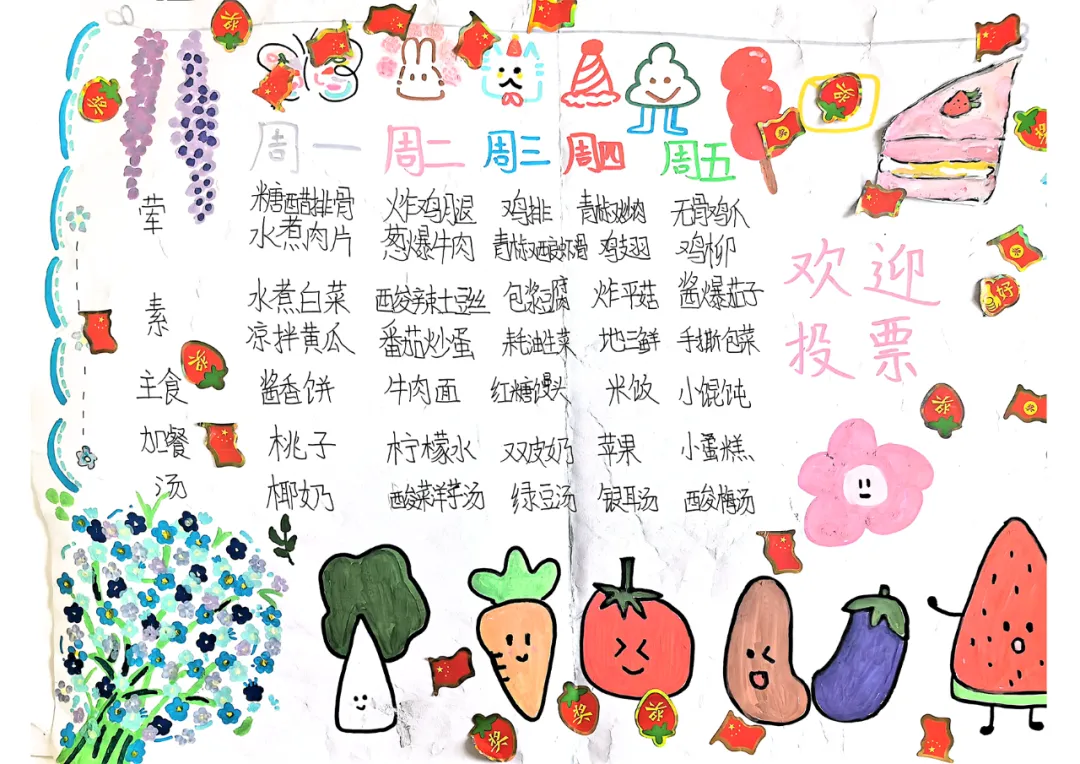 周一 周二 周三 周四 周五
荤 糖醋排骨 炸鸡腿 鸡排 青椒炒肉 无骨鸡爪
水煮肉片 葱爆牛肉 鸡翅 鸡柳
素 水煮白菜 酸辣土豆丝 包浆豆腐 炸平菇 酱爆茄子
凉拌黄瓜 番茄炒蛋 耗油生菜 地三鲜 手撕包菜
主食 酱香饼 牛肉面 红糖馒头 米饭 小馄饨
加餐 桃子 柠檬水 双皮奶 苹果 小蛋糕
汤 椰奶 酸菜洋芋汤 绿豆汤 银耳汤 酸梅汤
欢迎
投票
奖
奖
奖
奖
奖
奖
奖
奖
好